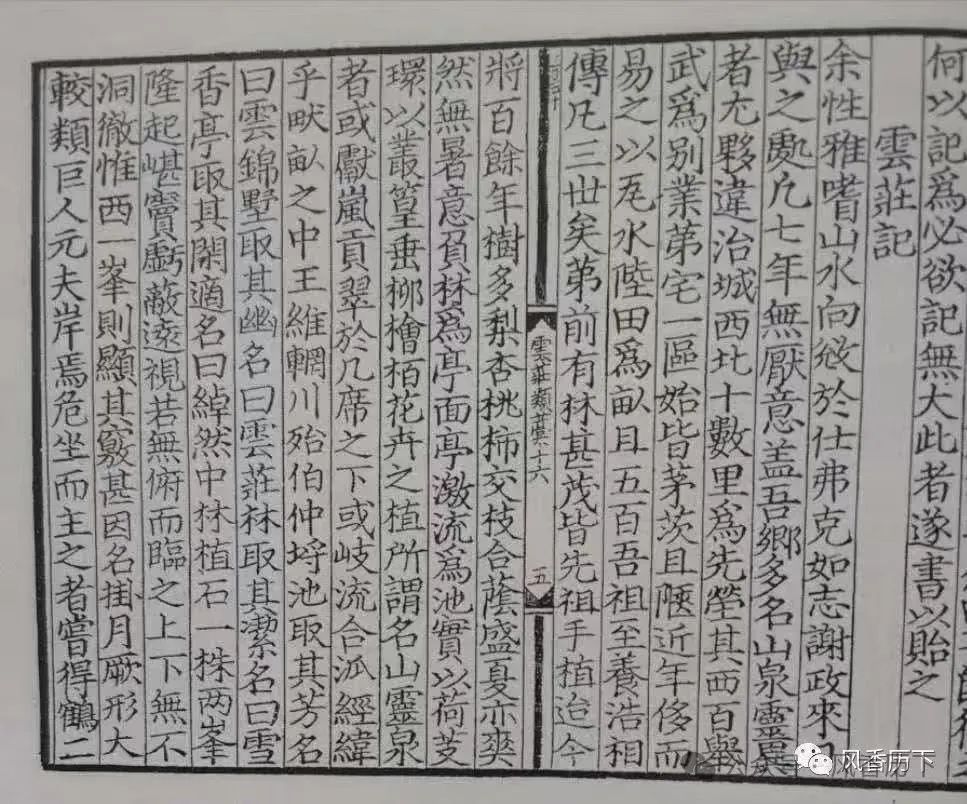 何以記爲必欲記無大此者遂書以貽之
雲莊記
余性雅嗜山水向縻於仕弗克如志謝政來
與之處凡七年無厭意盖吾鄉多名山泉靈異
者尤夥違治城西北十數里爲先塋其西百舉
武爲别業第宅一區始皆茅茨且陿近年侈而
易之以瓦水陸田爲畝且五百吾祖至養浩相
傳凡三世矣第前有林甚茂皆先祖手植迨今
雲莊類藁十六
五
將百餘年樹多梨杏桃柿交枝合蔭盛夏亦爽
然無暑意負林爲亭面亭激流爲池實以荷芰
環以叢篁垂柳檜栢花卉之植所謂名山靈泉
者或獻嵐貢翠於几席之下或岐流合派經緯
乎畎畝之中王維輞川殆伯仲埒池取其芳名
曰雲錦墅取其幽名曰雲莊林取其潔名曰雪
香亭取其閑適名曰綽然中林植石一株两峯
隆起嵁竇虧蔽逺視若無俯而臨之上下無不
洞徹惟西一峯則顯其竅甚因名掛月厥形大
較類巨人元夫岸焉危坐而主之者嘗得鶴二
风香历下